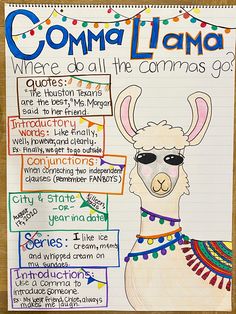 Comma Llama
Where do all the commas go?
Quotes:
"The Houston Texans
are the best," Ms. Morgan
said to her friend.
Introductory
Words: Like finally,
well, however, and clearly.
Ex- Finally, we get to go outside.
Conjunctions:
when connecting two independent
clauses (Remember FANBOYS)
City & State
-OR-
year in a date
August
2020
Series: I like ice
cream, m&ms,
and whipped cream on
my sundaes.
Introductions:
Use a comma to
introduce someone.
Ex- My best friend, Chloe, always
makes me laugh.